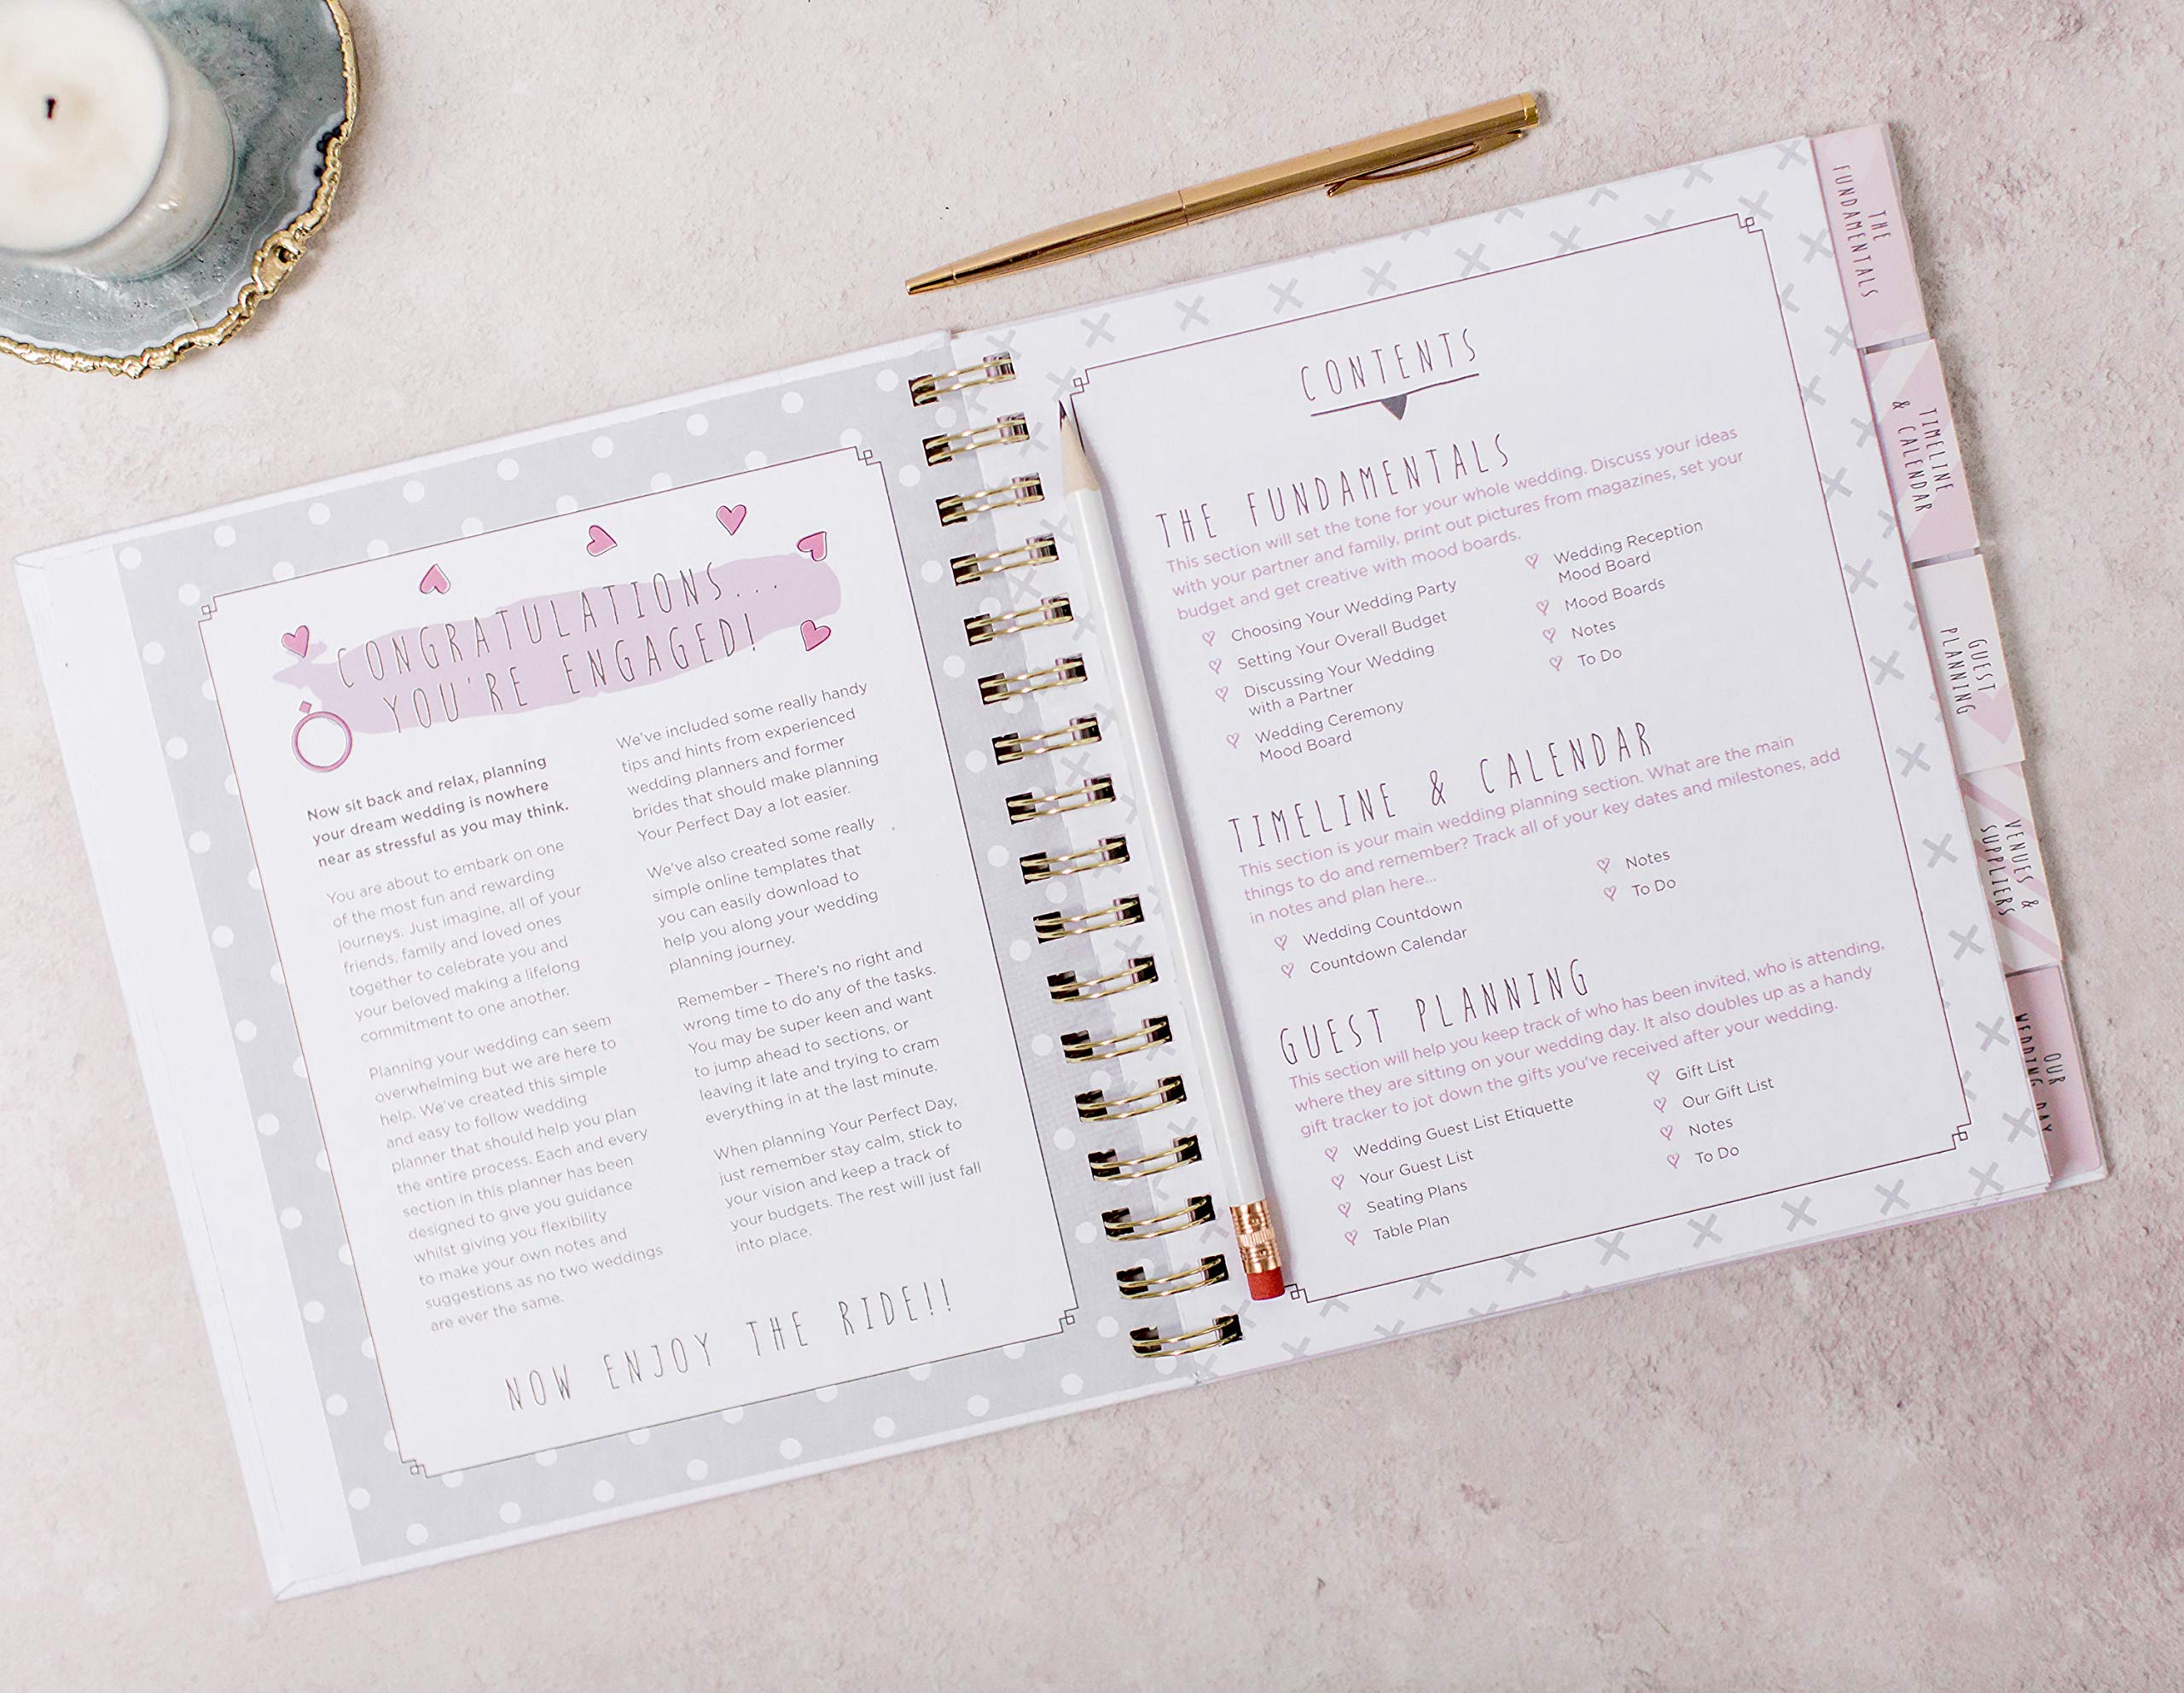 CONGRATULATIONS...
YOU'RE ENGAGED!
Now sit back and relax, planning
your dream wedding is nowhere
near as stressful as you may think.
You are about to embark on one
of the most fun and rewarding
journeys. Just imagine, all of your
friends, family and loved ones
together to celebrate you and
your beloved making a lifelong
commitment to one another.
Planning your wedding can seem
overwhelming but we are here to
help. We've created this simple
and easy to follow wedding
planner that should help you plan
the entire process. Each and every
section in this planner has been
designed to give you guidance
whilst giving you flexibility
to make your own notes and
suggestions as no two weddings
are ever the same.
We've included some really handy
tips and hints from experienced
wedding planners and former
brides that should make planning
Your Perfect Day a lot easier.
We've also created some really
simple online templates that
you can easily download to
help you along your wedding
planning journey.
Remember – There's no right and
wrong time to do any of the tasks.
You may be super keen and want
to jump ahead to sections, or
leaving it late and trying to cram
everything in at the last minute.
When planning Your Perfect Day,
just remember stay calm, stick to
your vision and keep a track of
your budgets. The rest will just fall
into place.
NOW ENJOY THE RIDE!!
CONTENTS
THE FUNDAMENTALS
This section will set the tone for your whole wedding. Discuss your ideas
with your partner and family, print out pictures from magazines, set your
budget and get creative with mood boards.
Choosing Your Wedding Party
Setting Your Overall Budget
Discussing Your Wedding
with a Partner
Wedding Ceremony
Mood Board
Wedding Reception
Mood Board
Mood Boards
Notes
To Do
TIMELINE & CALENDAR
This section is your main wedding planning section. What are the main
things to do and remember? Track all of your key dates and milestones, add
in notes and plan here...
Wedding Countdown
Countdown Calendar
Notes
To Do
GUEST PLANNING
This section will help you keep track of who has been invited, who is attending,
where they are sitting on your wedding day. It also doubles up as a handy
gift tracker to jot down the gifts you've received after your wedding.
Wedding Guest List Etiquette
Your Guest List
Seating Plans
Table Plan
Gift List
Our Gift List
Notes
To Do
THE
FUNDAMENTALS
TIMELINE
& CALENDAR
GUEST
PLANNING
VENUES &
SUPPLIERS
OUR
WEDDING DAY